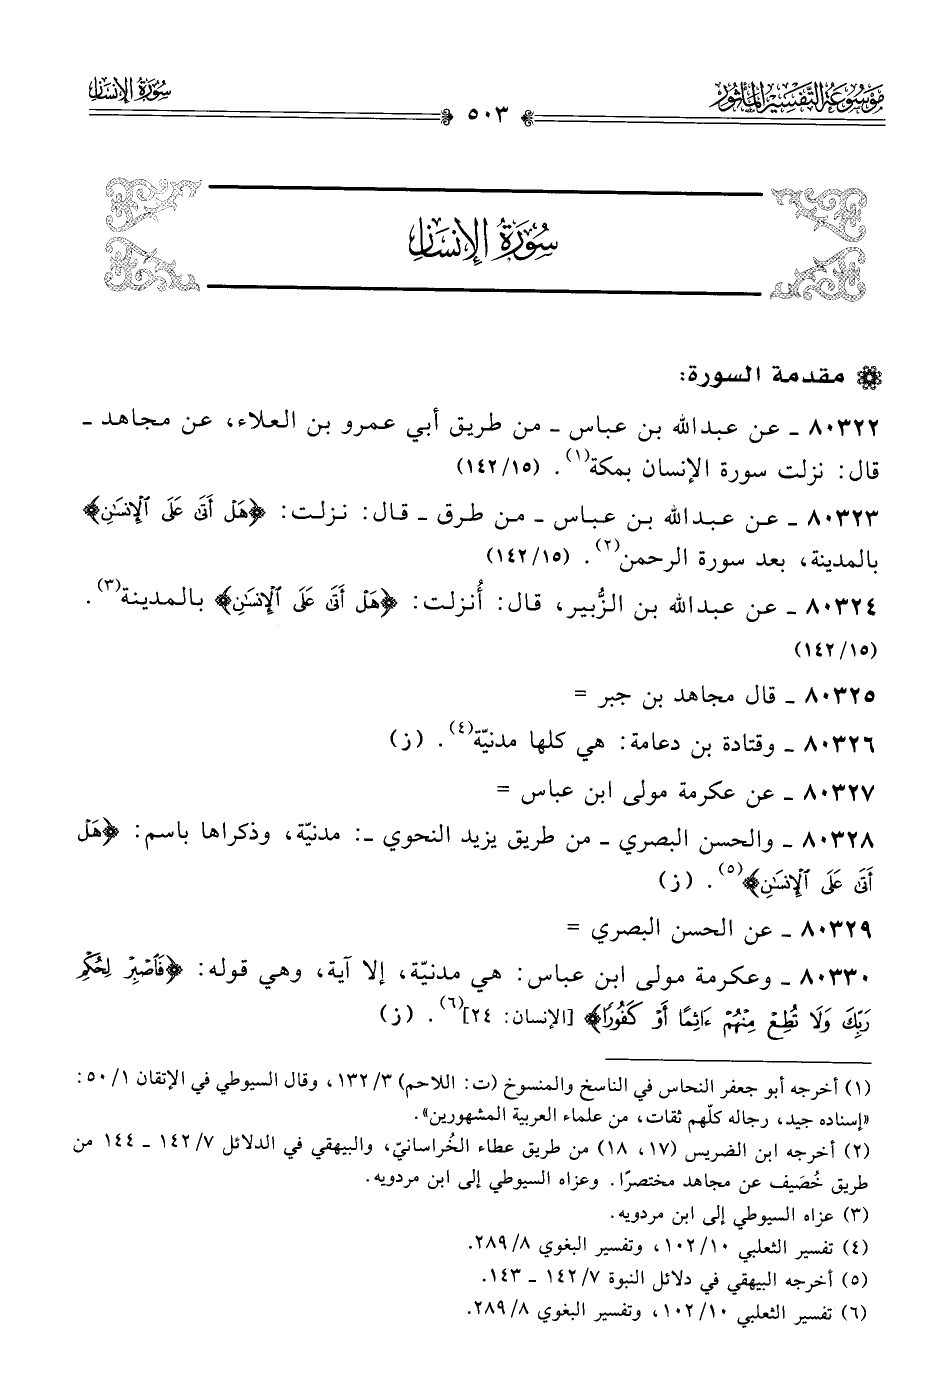 مَوْسُوعَة التَّفْسِيرِ المَأْثُور
سُورَةُ الإِنسَانِ
٥٠٣
سُورَةُ الإِنسَانِ
مقدمة السورة:
٨٠٣٢٢ ـ عن عبدالله بن عباس ـ من طريق أبي عمرو بن العلاء، عن مجاهد ـ
قال: نزلت سورة الإنسان بمكة(١). (١٤٢/١٥)
٨٠٣٢٣ ـ عن عبدالله بن عباس ـ من طرق ـ قال: نزلت: ﴿هَلْ أَتَىٰ عَلَى ٱلْإِنسَٰنِ﴾
بالمدينة، بعد سورة الرحمن(٢). (١٤٢/١٥)
٨٠٣٢٤ ـ عن عبدالله بن الزُّبير، قال: أُنزلت: ﴿هَلْ أَتَىٰ عَلَى ٱلْإِنسَٰنِ﴾ بالمدينة(٣).
(١٤٢/١٥)
٨٠٣٢٥ ـ قال مجاهد بن جبر =
٨٠٣٢٦ ـ وقتادة بن دعامة: هي كلها مدنيّة(٤). (ز)
٨٠٣٢٧ ـ عن عكرمة مولى ابن عباس =
٨٠٣٢٨ ـ والحسن البصري ـ من طريق يزيد النحوي ـ: مدنيّة، وذكراها باسم: ﴿هَلْ
أَتَىٰ عَلَى ٱلْإِنسَٰنِ﴾(٥). (ز)
٨٠٣٢٩ ـ عن الحسن البصري =
٨٠٣٣٠ ـ وعكرمة مولى ابن عباس: هي مدنيّة، إلا آية، وهي قوله: ﴿فَٱصْبِرْ لِحُكْمِ
رَبِّكَ وَلَا تُطِعْ مِنْهُمْ ءَاثِمًا أَوْ كَفُورًا﴾ [الإنسان: ٢٤](٦). (ز)
(١) أخرجه أبو جعفر النحاس في الناسخ والمنسوخ (ت: اللاحم) ١٣٢/٣، وقال السيوطي في الإتقان ٥٠/١:
«إسناده جيد، رجاله كلّهم ثقات، من علماء العربية المشهورين».
(٢) أخرجه ابن الضريس (١٧، ١٨) من طريق عطاء الخُراسانيّ، والبيهقي في الدلائل ١٤٢/٧ ـ ١٤٤ من
طريق خُصَيف عن مجاهد مختصرًا. وعزاه السيوطي إلى ابن مردويه.
(٣) عزاه السيوطي إلى ابن مردويه.
(٤) تفسير الثعلبي ١٠٢/١٠، وتفسير البغوي ٢٨٩/٨.
(٥) أخرجه البيهقي في دلائل النبوة ١٤٢/٧ ـ ١٤٣.
(٦) تفسير الثعلبي ١٠٢/١٠، وتفسير البغوي ٢٨٩/٨.